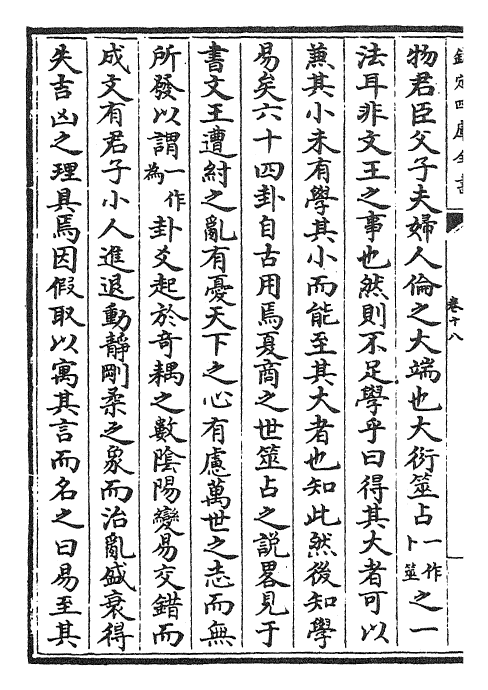 欽定四庫全書
卷十八
物君臣父子夫婦人倫之大端也大衍筮占一作卜筮之一
法耳非文王之事也然則不足學乎曰得其大者可以
蒹其小未有學其小而能至其大者也知此然後知學
易矣六十四卦自古用焉夏商之世筮占之說畧見于
書文王遭紂之亂有憂天下之心有慮萬世之志而無
所發以謂一作為卦爻起於奇耦之數陰陽變易交錯而
成文有君子小人進退動靜剛柔之象而治亂盛衰得
失吉凶之理具焉因假取以寓其言而名之曰易至其